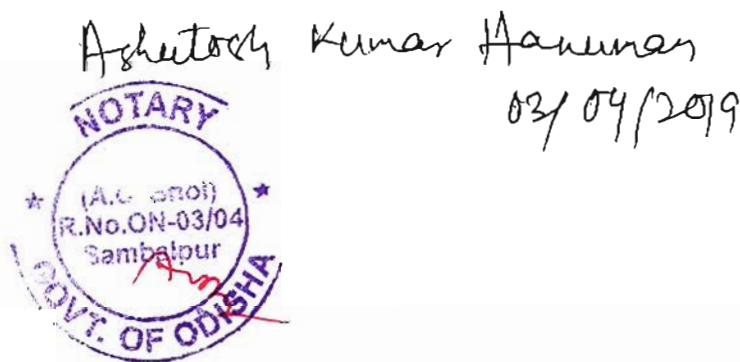 Ashutosh Kumar Hanuman
03/04/2019
NOTARY
R.No.ON-03/04
Sambalpur
GOVT. OF ODISHA